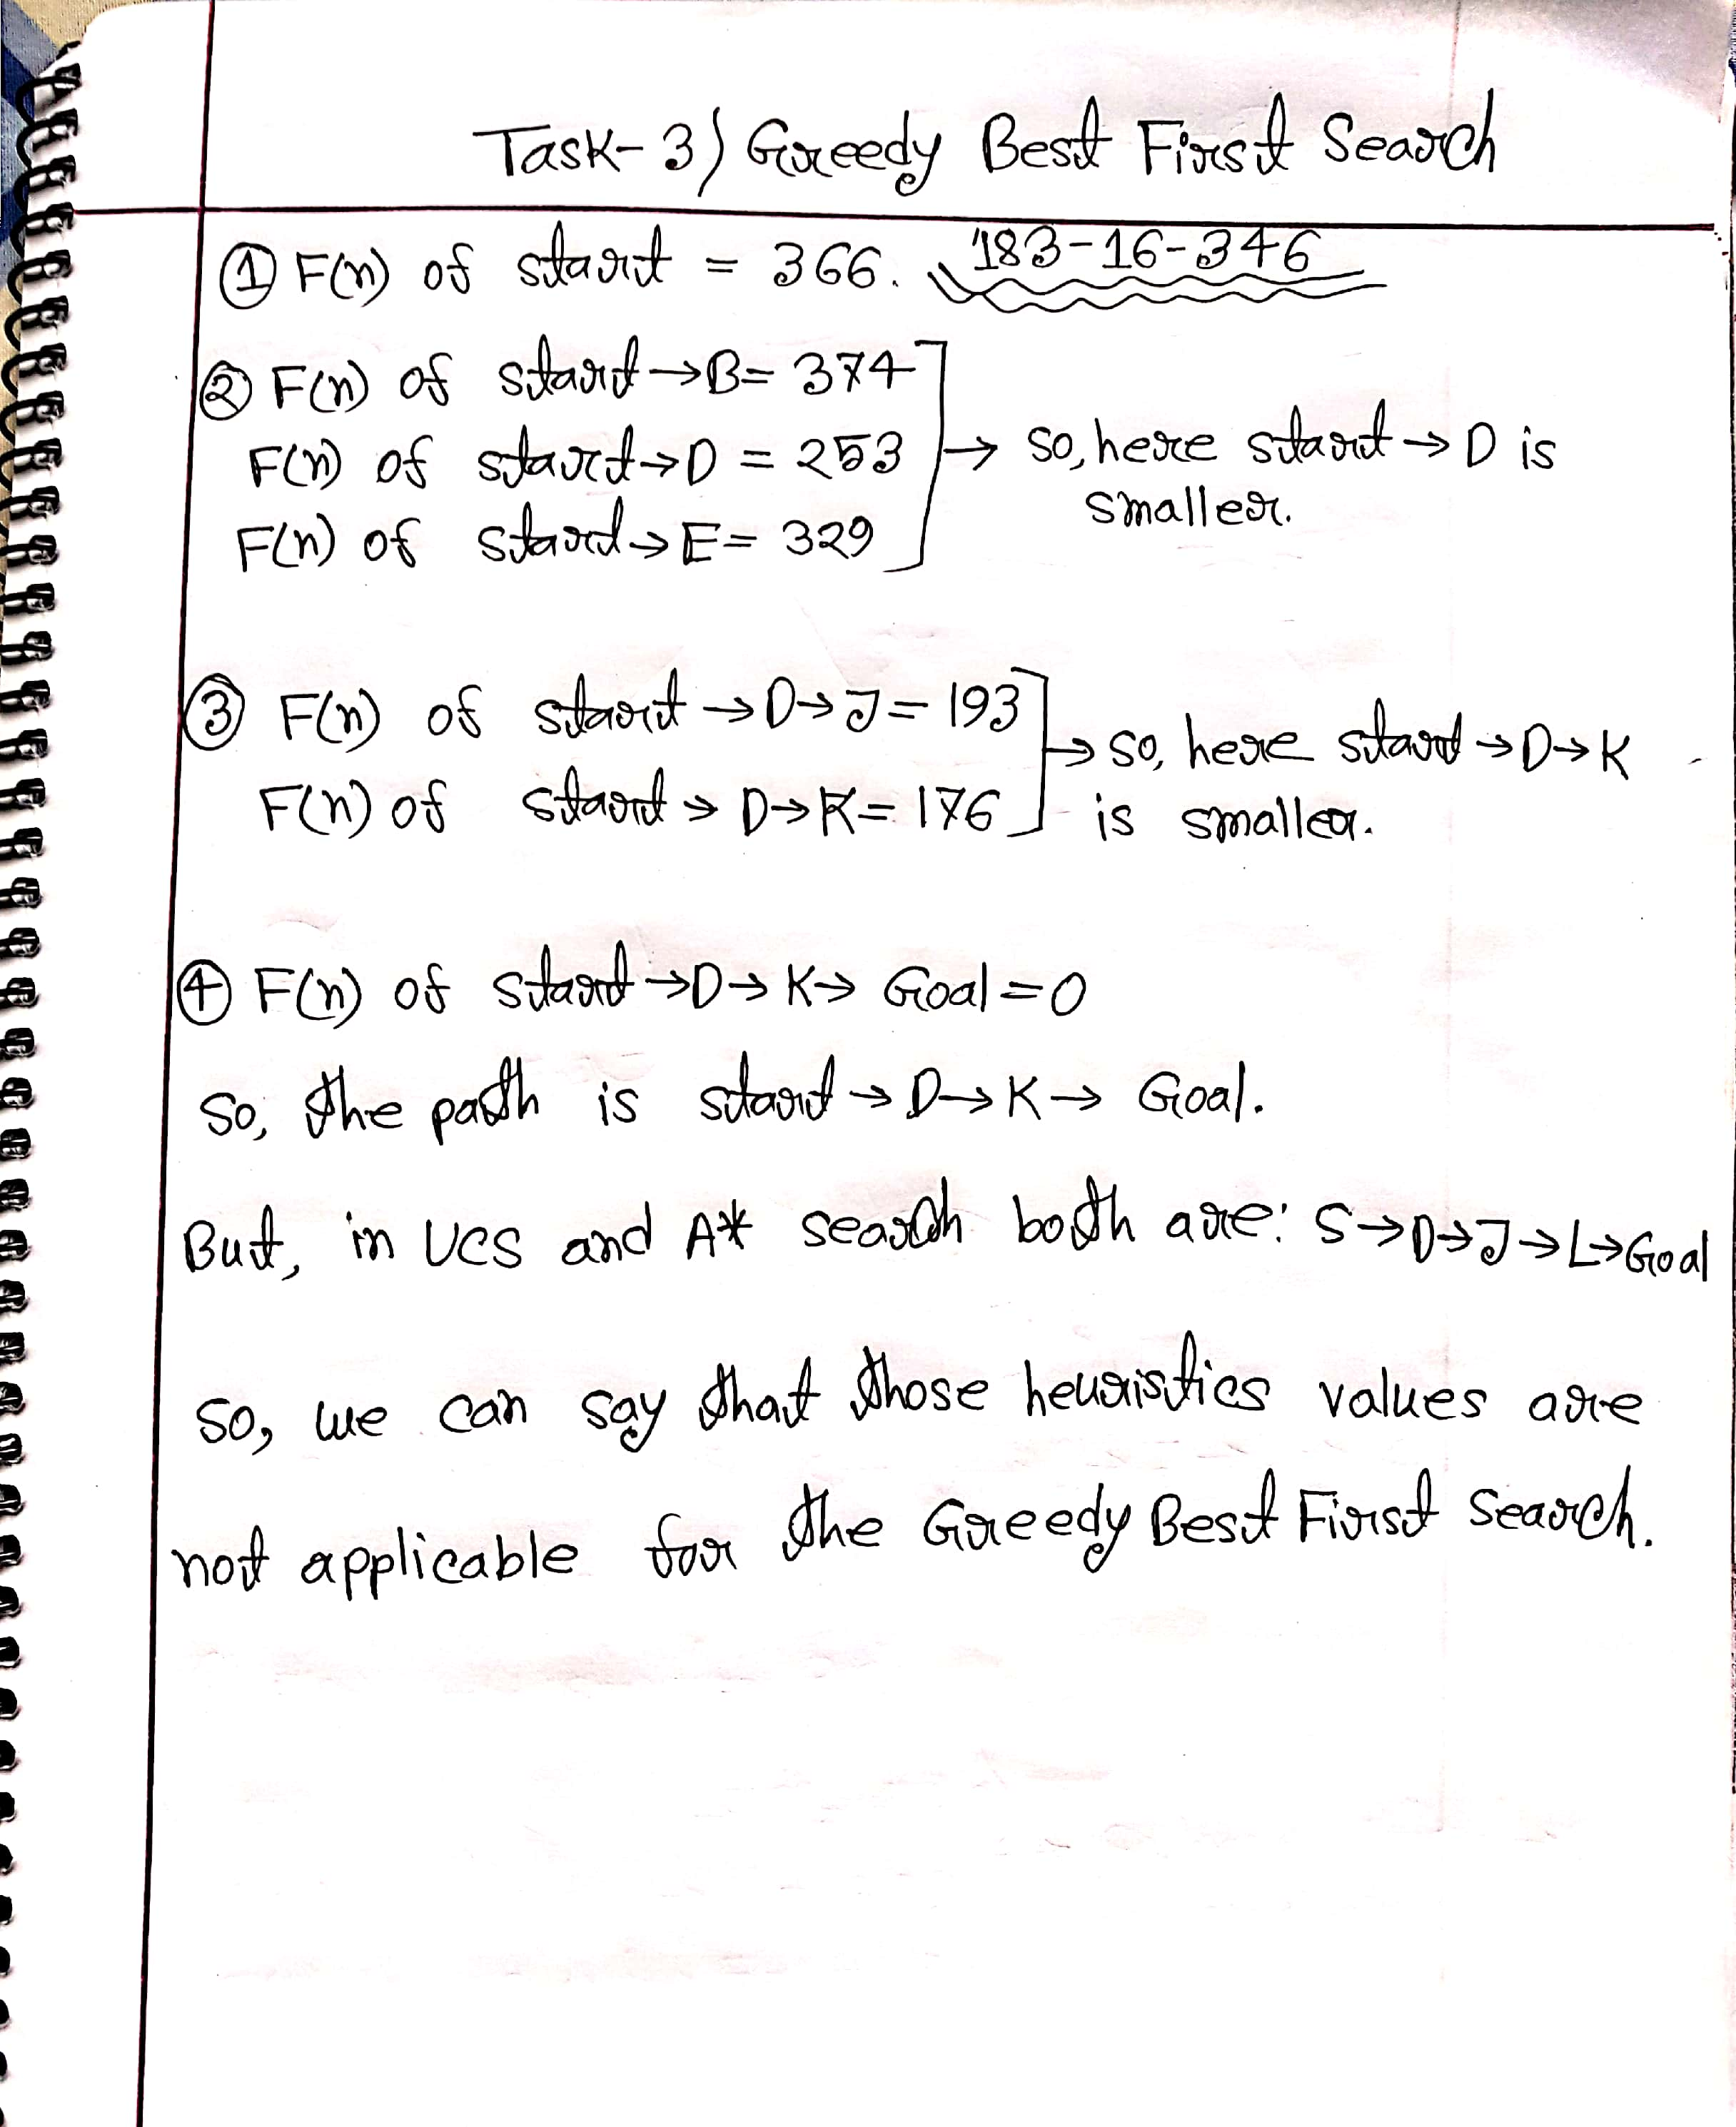 Task-3) Greedy Best First Search
① F(n) of start = 366. 183-16-346
② F(n) of start → B = 374
F(n) of start → D = 253 → so, here start → D is
smaller.
F(n) of start → E = 329
③ F(n) of start → D → J = 193
→ so, here start → D → K
F(n) of start → D → K = 176 is smaller.
④ F(n) of start → D → K → Goal = 0
So, the path is start → D → K → Goal.
But, in UCS and A* search both are: S → D → J → L → Goal
So, we can say that those heuristics values are
not applicable for the Greedy Best First Search.